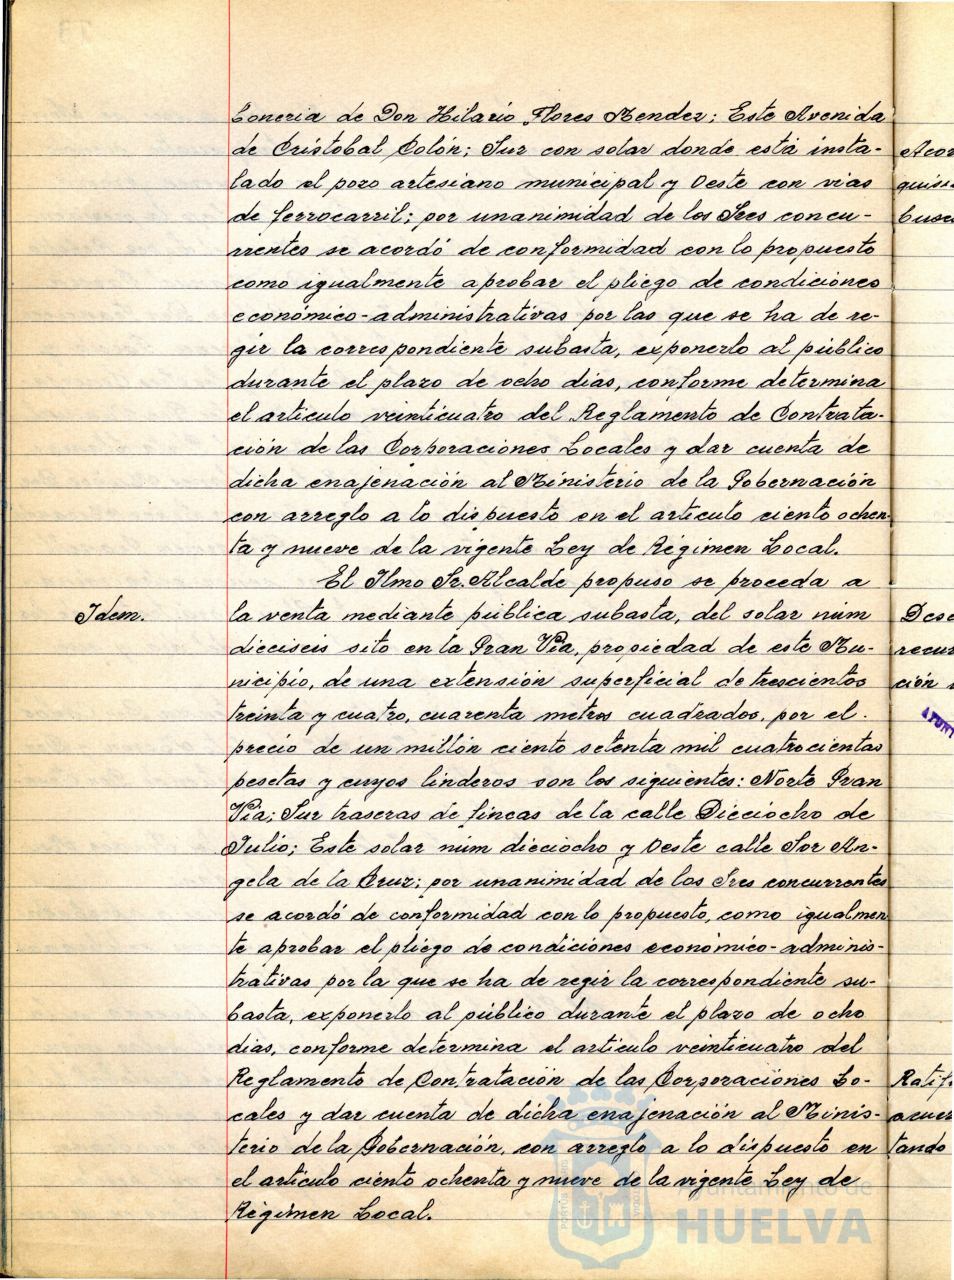 boneria de Don Hilario Flores Mendez; Este Avenida
de Cristobal Colón; Sur con solar donde está insta-
lado el pozo artesiano municipal y Oeste con vias
de ferrocarril; por unanimidad de los Sres concu-
rrentes se acordó de conformidad con lo propuesto
como igualmente aprobar el pliego de condiciones
económico-administrativas por las que se ha de re-
gir la correspondiente subasta, exponerlo al público
durante el plazo de ocho dias, conforme determina
el articulo veinticuatro del Reglamento de Contrata-
ción de las Corporaciones Locales y dar cuenta de
dicha enajenación al Ministerio de la Gobernación
con arreglo a lo dispuesto en el articulo ciento ochen-
ta y nueve de la vigente Ley de Régimen Local.
El Ilmo Sr. Alcalde propuso se proceda a
Idem.
la venta mediante pública subasta, del solar núm
dieciseis sito en la Gran Via, propiedad de este Mu-
nicipio, de una extensión superficial de trescientos
treinta y cuatro, cuarenta metros cuadrados, por el
precio de un millón ciento setenta mil cuatrocientas
pesetas y cuyos linderos son los siguientes: Norte Gran
Via; Sur traseras de fincas de la calle Dieciocho de
Julio; Este solar núm dieciocho y Oeste calle Sor An-
gela de la Cruz; por unanimidad de los Sres concurrentes
se acordó de conformidad con lo propuesto, como igualmen
te aprobar el pliego de condiciones económico-adminis-
trativas por la que se ha de regir la correspondiente su-
basta, exponerlo al público durante el plazo de ocho
dias, conforme determina el articulo veinticuatro del
Reglamento de Contratación de las Corporaciones Lo-
cales y dar cuenta de dicha enajenación al Minis-
terio de la Gobernación, con arreglo a lo dispuesto en
el articulo ciento ochenta y nueve de la vigente Ley de
Régimen Local.
Acor
quisi
buses
Dese
recur
ción
AYUNT
Ratif
acuer
tando
Ayuntamiento de
HUELVA